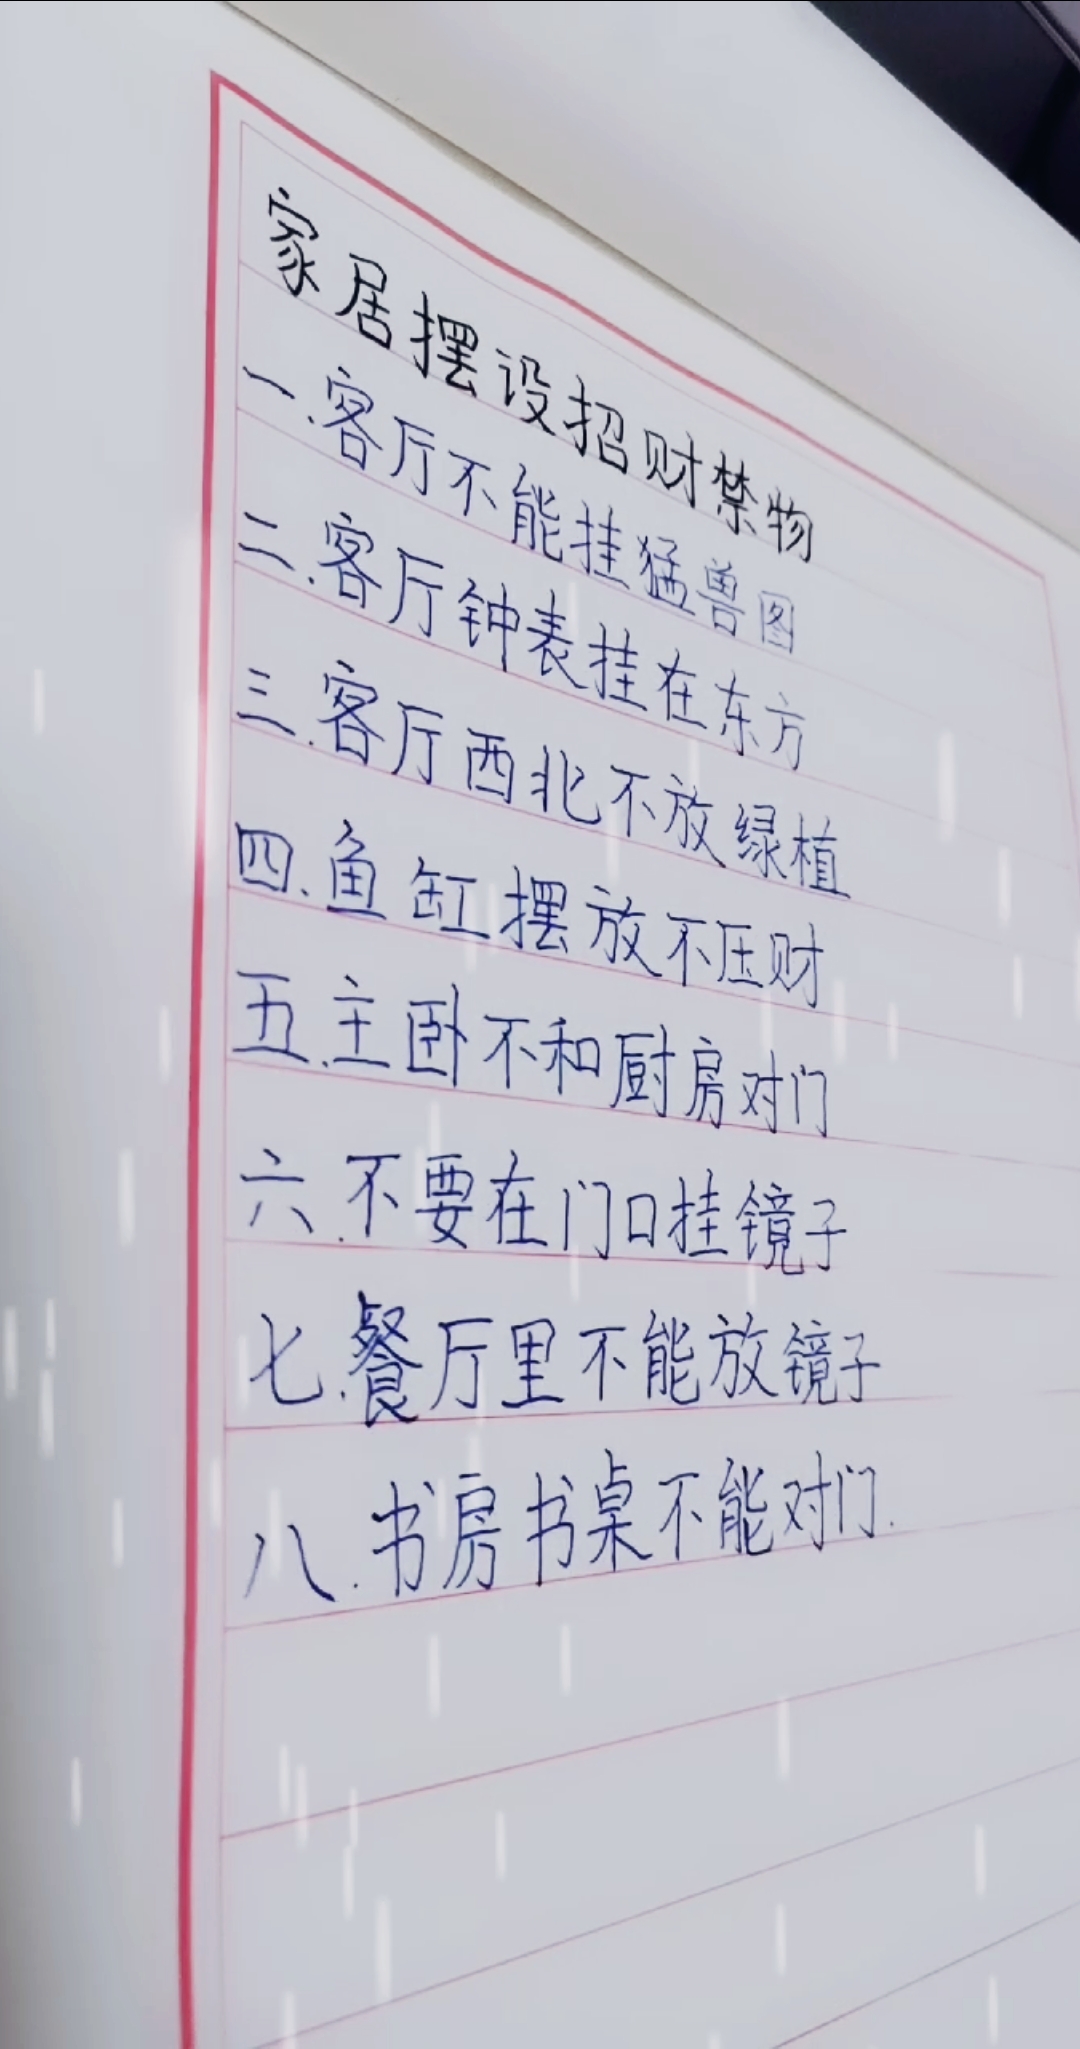 家居摆设招财禁物
一.客厅不能挂猛兽图
二.客厅钟表挂在东方
三.客厅西北不放绿植
四.鱼缸摆放不压财
五.主卧不和厨房对门
六.不要在门口挂镜子
七.餐厅里不能放镜子
八.书房书桌不能对门.